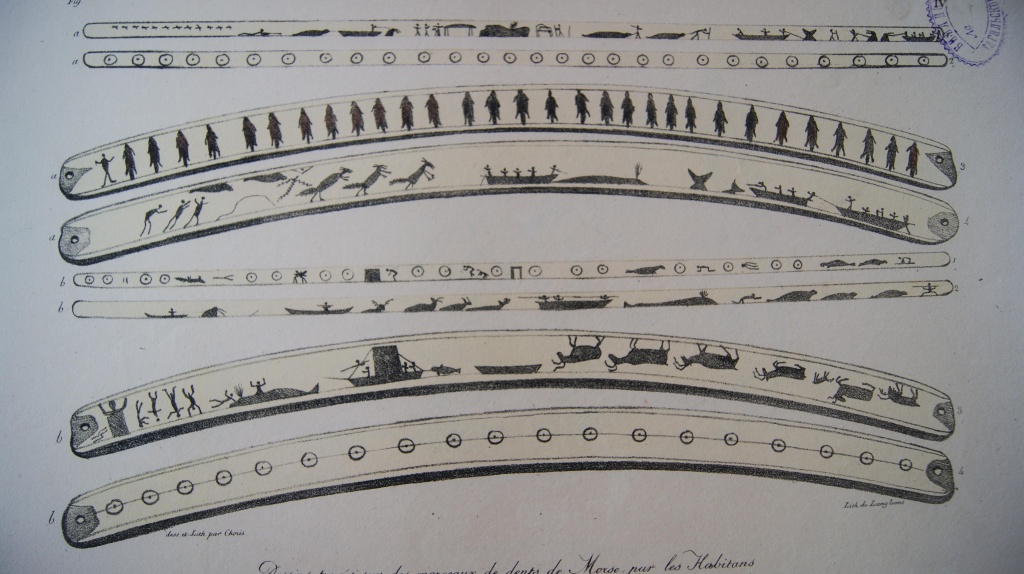 Fig
a
a
2
a
3
a
4
b
1
b
2
b
3
b
4
dess et Lith par Choris
Lith de Langlumé
de dents de Morse par les Habitans